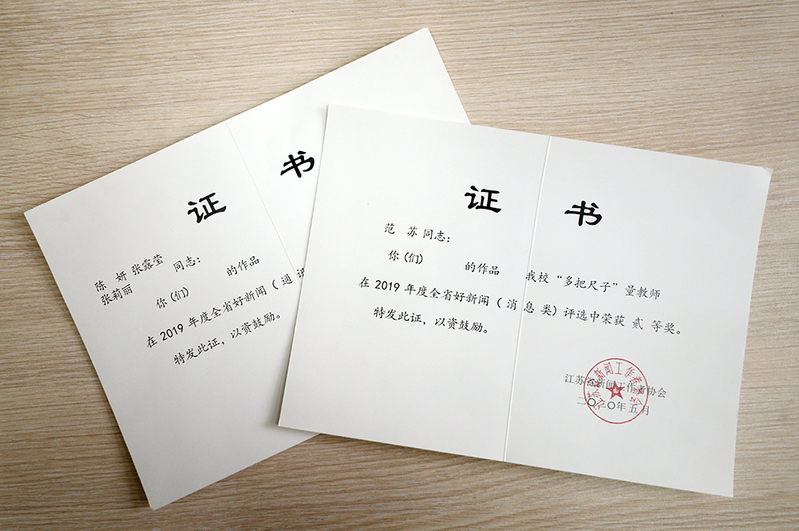 证 书
陈 妍 张露莹 同志：
张莉丽
你(们) 的作品
在 2019 年度全省好新闻（ 通 讯
特发此证，以资鼓励。
证 书
范 苏 同志：
你(们) 的作品 我校“多把尺子”量教师
在 2019 年度全省好新闻（ 消 息 类）评选中荣获 贰 等奖。
特发此证，以资鼓励。
江苏省新闻工作者协会
二〇二〇年五月